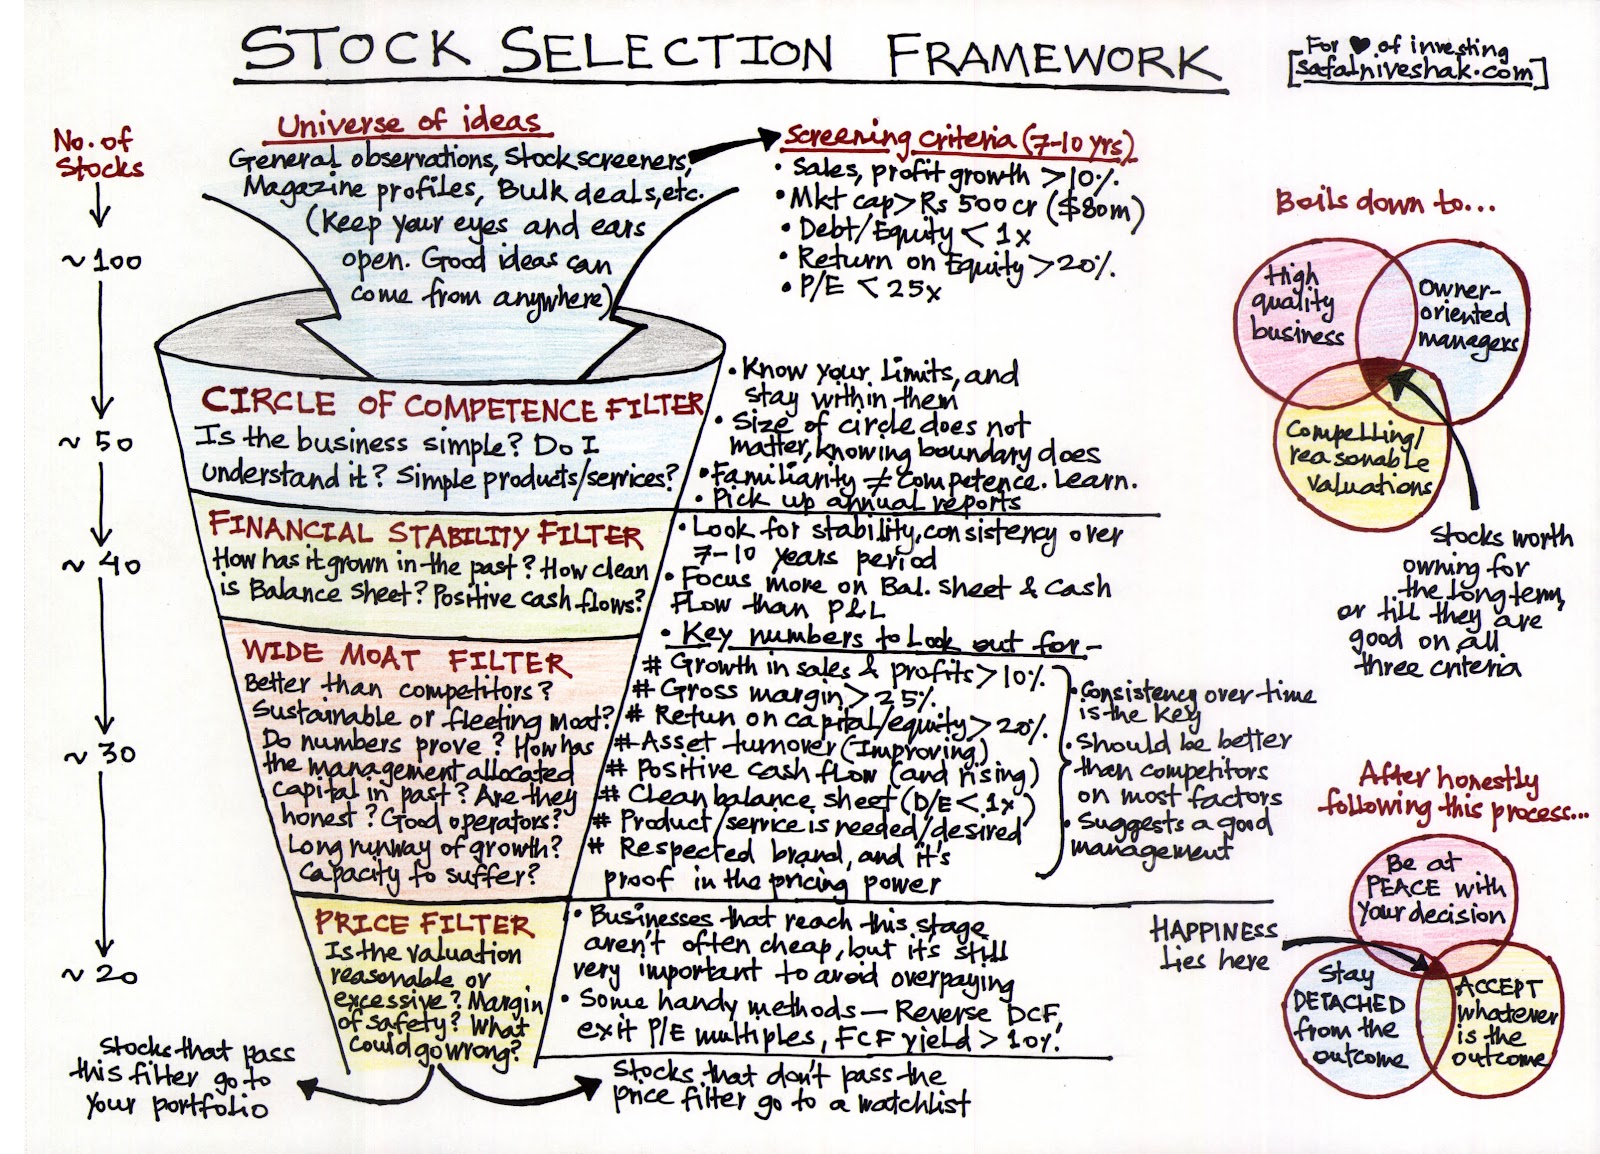 STOCK SELECTION FRAMEWORK
For ♥ of investing
[safalniveshak.com]
No. of
Stocks
~ 100
~ 50
~ 40
~ 30
~ 20
Universe of ideas
General observations, Stock screeners,
Magazine profiles, Bulk deals, etc.
(Keep your eyes and ears
open. Good ideas can
come from anywhere)
Screening criteria (7-10 yrs)
• Sales, profit growth > 10%
• Mkt cap > Rs 500 cr ($80m)
• Debt/Equity < 1x
• Return on Equity > 20%
• P/E < 25x
CIRCLE OF COMPETENCE FILTER
Is the business simple? Do I
understand it? Simple products/services?
• Know your limits, and
stay within them
• Size of circle does not
matter, knowing boundary does
• Familiarity ≠ competence. Learn.
• Pick up annual reports
FINANCIAL STABILITY FILTER
How has it grown in the past? How clean
is Balance Sheet? Positive cash flows?
• Look for stability, consistency over
7-10 years period
• Focus more on Bal. Sheet & Cash
Flow than P&L
• Key numbers to look out for-
WIDE MOAT FILTER
Better than competitors?
Sustainable or fleeting moat?
Do numbers prove? How has
the management allocated
capital in past? Are they
honest? Good operators?
Long runway of growth?
Capacity to suffer?
# Growth in sales & profits > 10%
# Gross margin > 25%
# Retun on capital/equity > 20%
# Asset turnover (Improving)
# Positive cash flow (and rising)
# Clean balance sheet (D/E < 1x)
# Product/service is needed/desired
# Respected brand, and it's
proof in the pricing power
• Consistency over time
is the key
• Should be better
than competitors
on most factors
• Suggests a good
management
PRICE FILTER
Is the valuation
reasonable or
excessive? Margin
of safety? What
could go wrong?
• Businesses that reach this stage
aren't often cheap, but it's still
very important to avoid overpaying
• Some handy methods — Reverse DCF,
exit P/E multiples, FCF yield > 10%
Stocks that pass
this filter go to
your portfolio
Stocks that don't pass the
price filter go to a watchlist
Boils down to...
High
quality
business
Owner-
oriented
managers
Compelling/
reasonable
valuations
Stocks worth
owning for
the long term,
or till they are
good on all
three criteria
After honestly
following this process...
Be at
PEACE with
your decision
HAPPINESS
lies here
Stay
DETACHED
from the
outcome
ACCEPT
whatever
is the
outcome